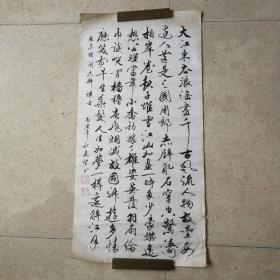 大江東去浪淘盡千古風流人物故壘西
邊人道是三國周郎赤壁亂石穿空驚濤
拍岸卷起千堆雪江山如畫一時多少豪傑遙
想公瑾當年小喬初嫁了雄姿英發羽扇綸
巾談笑間檣櫓灰飛煙滅故國神遊多情
應笑我早生華髮人生如夢一樽還酹江月